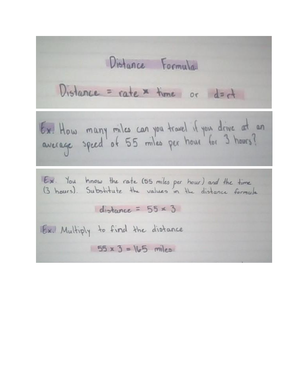 Distance Formula
Distance = rate × time or d=rt
Ex: How many miles can you travel if you drive at an
average speed of 55 miles per hour for 3 hours?
Ex: You know the rate (55 miles per hour) and the time
(3 hours). Substitute the values in the distance formula
distance = 55 × 3
Ex: Multiply to find the distance
55 × 3 = 165 miles